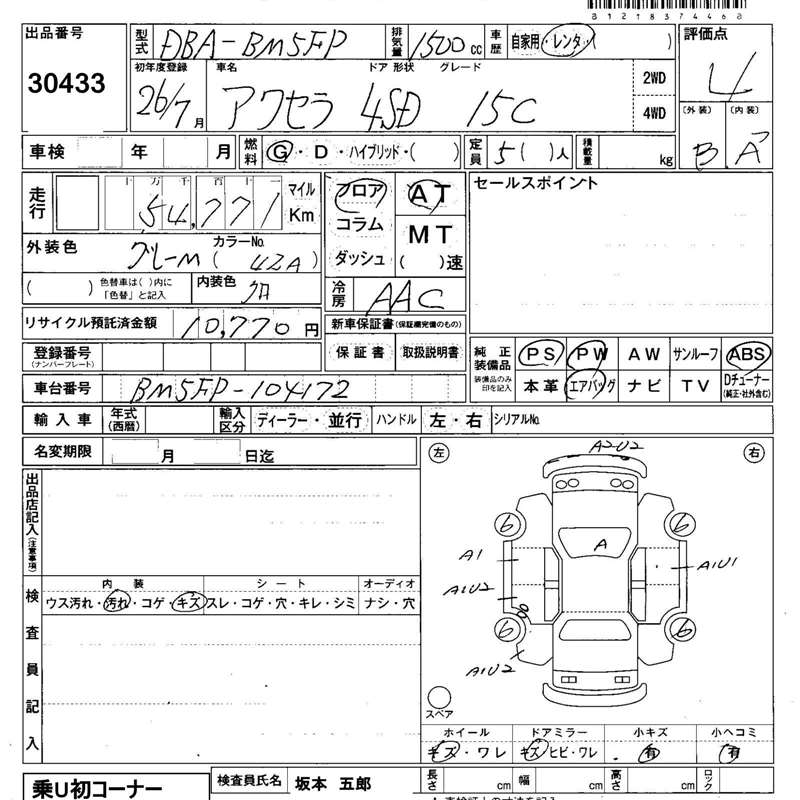 81218374468
出品番号 30433
型式 DBA-BM5FP 排気量 1500 cc 車歴 自家用・レンタ( )
評価点 4
初年度登録 26/7月 車名 アクセラ ドア 形状 4SD グレード 15C 2WD 4WD
(外装) B (内装) A
車検 年 月 燃料 G・D・ハイブリッド・( ) 定員 5( )人 積載量 kg
走行 十万千百十一 54,771 マイル Km
フロア コラム ダッシュ AT MT ( )速
セールスポイント
外装色 グレーM カラーNo. (42A)
( ) 色替車は( )内に「色替」と記入 内装色 クロ
冷房 AAC
リサイクル預託済金額 10,770円
新車保証書(保証欄完備のもの)
保証書 取扱説明書
登録番号 (ナンバープレート)
純正装備品 装備品のみ印を記入 PS PW AW サンルーフ ABS
本革 エアバッグ ナビ TV Dチューナー(純正・社外含む)
車台番号 BM5FP-104172
輸入車 年式(西暦) 輸入区分 ディーラー・並行 ハンドル 左・右 シリアルNo.
名変期限 月 日迄
左 右
出品店記入(注意事項)
A2U2
6 6
A
A1 A1U1
A1U2
6 6
A1U2
スペア
検査員記入
内装 シート オーディオ
ウス汚れ・汚れ・コゲ・キズ スレ・コゲ・穴・キレ・シミ ナシ・穴
ホイール ドアミラー 小キズ 小ヘコミ
キズ・ワレ キズ・ヒビ・ワレ 有 有
乗U初コーナー
検査員氏名 坂本 五郎
長さ cm 幅 cm 高さ cm ロック